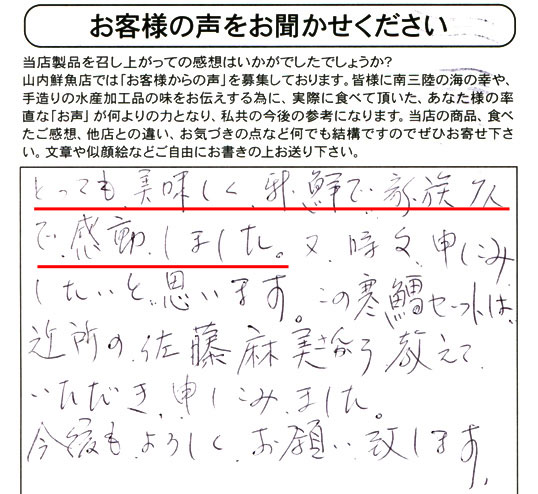 お客様の声をお聞かせください
当店製品を召し上がっての感想はいかがでしたでしょうか?
山内鮮魚店では「お客様からの声」を募集しております。皆様に南三陸の海の幸や、
手造りの水産加工品の味をお伝えする為に、実際に食べて頂いた、あなた様の率
直な「お声」が何よりの力となり、私共の今後の参考になります。当店の商品、食べ
たご感想、他店との違い、お気づきの点など何でも結構ですのでぜひお寄せ下さ
い。文章や似顔絵などご自由にお書きの上お送り下さい。
とっても美味しく、新鮮で、家族
で感動しました。又、時々、申こみ
したいと思います。この寒鱈セットは、
近所の佐藤麻美さんから教えて
いただき、申しこみました。
今後もよろしくお願い致します。